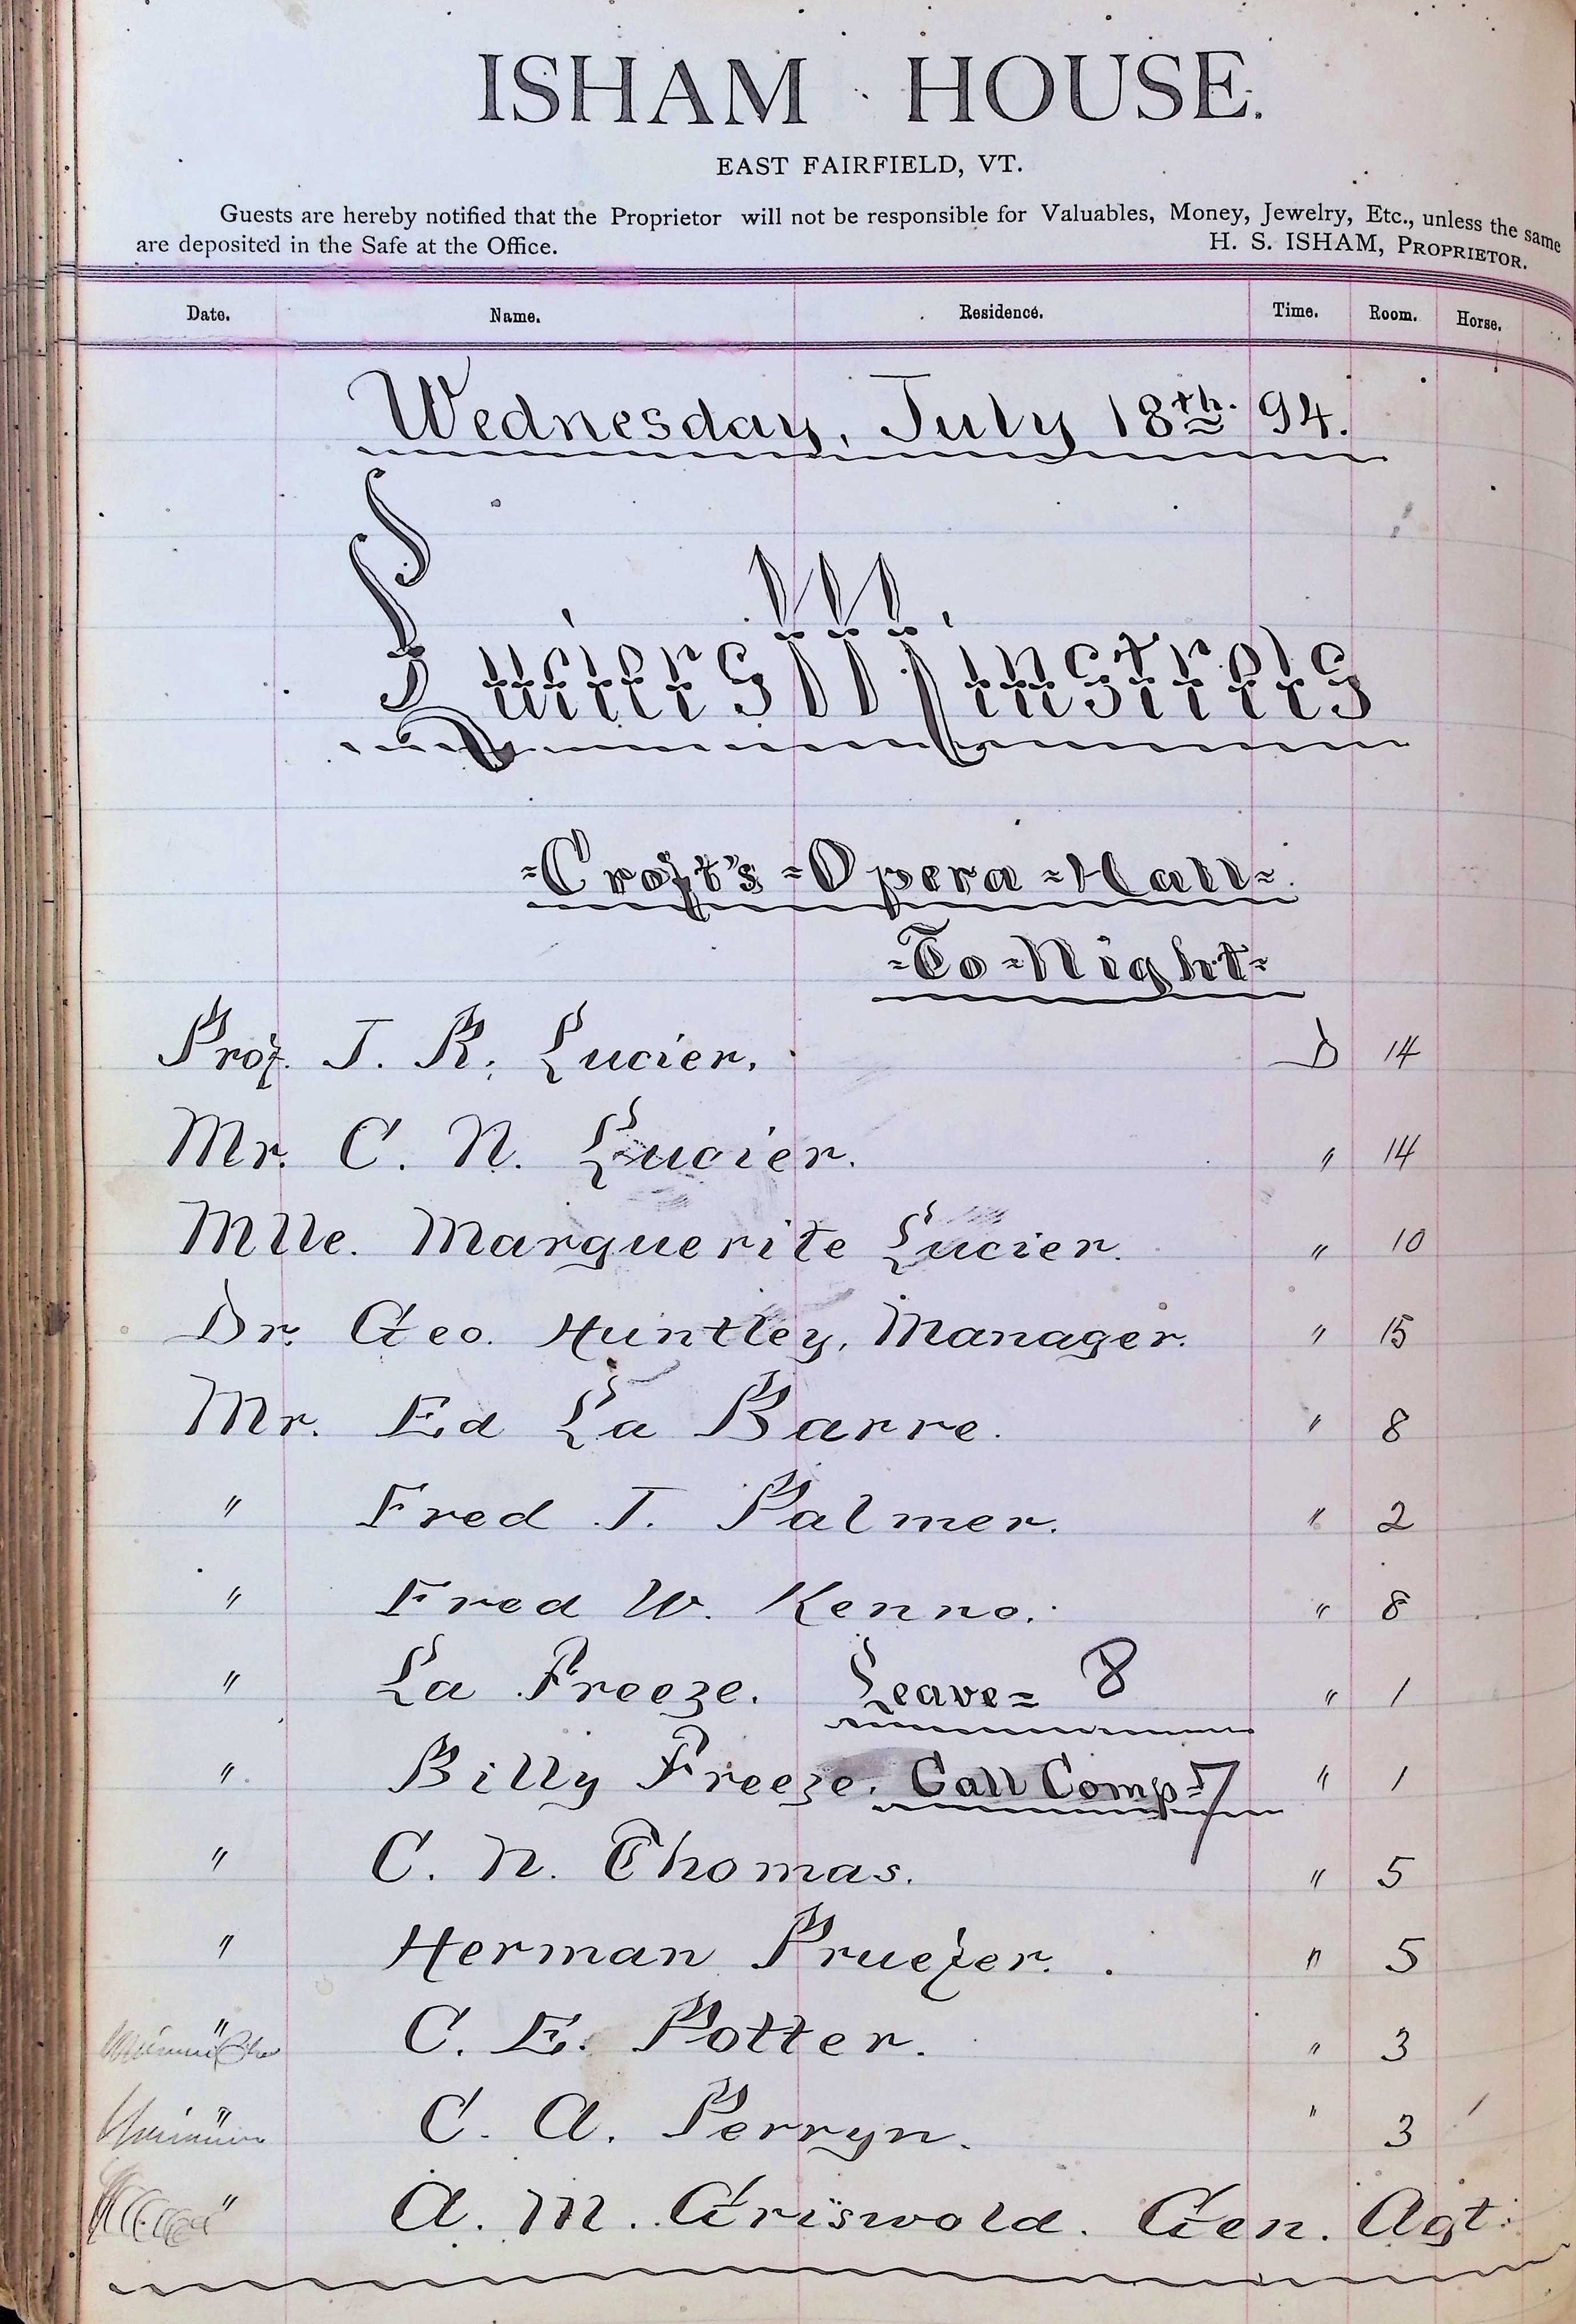 ISHAM HOUSE.
EAST FAIRFIELD, VT.
Guests are hereby notified that the Proprietor will not be responsible for Valuables, Money, Jewelry, Etc., unless the same
are deposited in the Safe at the Office. H. S. ISHAM, PROPRIETOR.
Date. Name. Residence. Time. Room. Horse.
Wednesday, July 18th. 94.
Lucier's Minstrels
=Croft's=Opera=Hall=
=To=Night=
Prof. J. R. Lucier. D 14
Mr. C. N. Lucier. " 14
Mlle. Marguerite Lucier. " 10
Dr. Geo. Huntley, Manager. " 15
Mr. Ed La Barre. " 8
" Fred J. Palmer. " 2
" Fred W. Kenno. " 8
" La Freeze. Leave= 8 " 1
" Billy Freeze. Call Comp=7 " 1
" C. N. Thomas. " 5
" Herman Pruefer. " 5
" C. E. Potter. " 3
" C. A. Perryn. " 3
" A. M. Griswold. Gen. Agt.